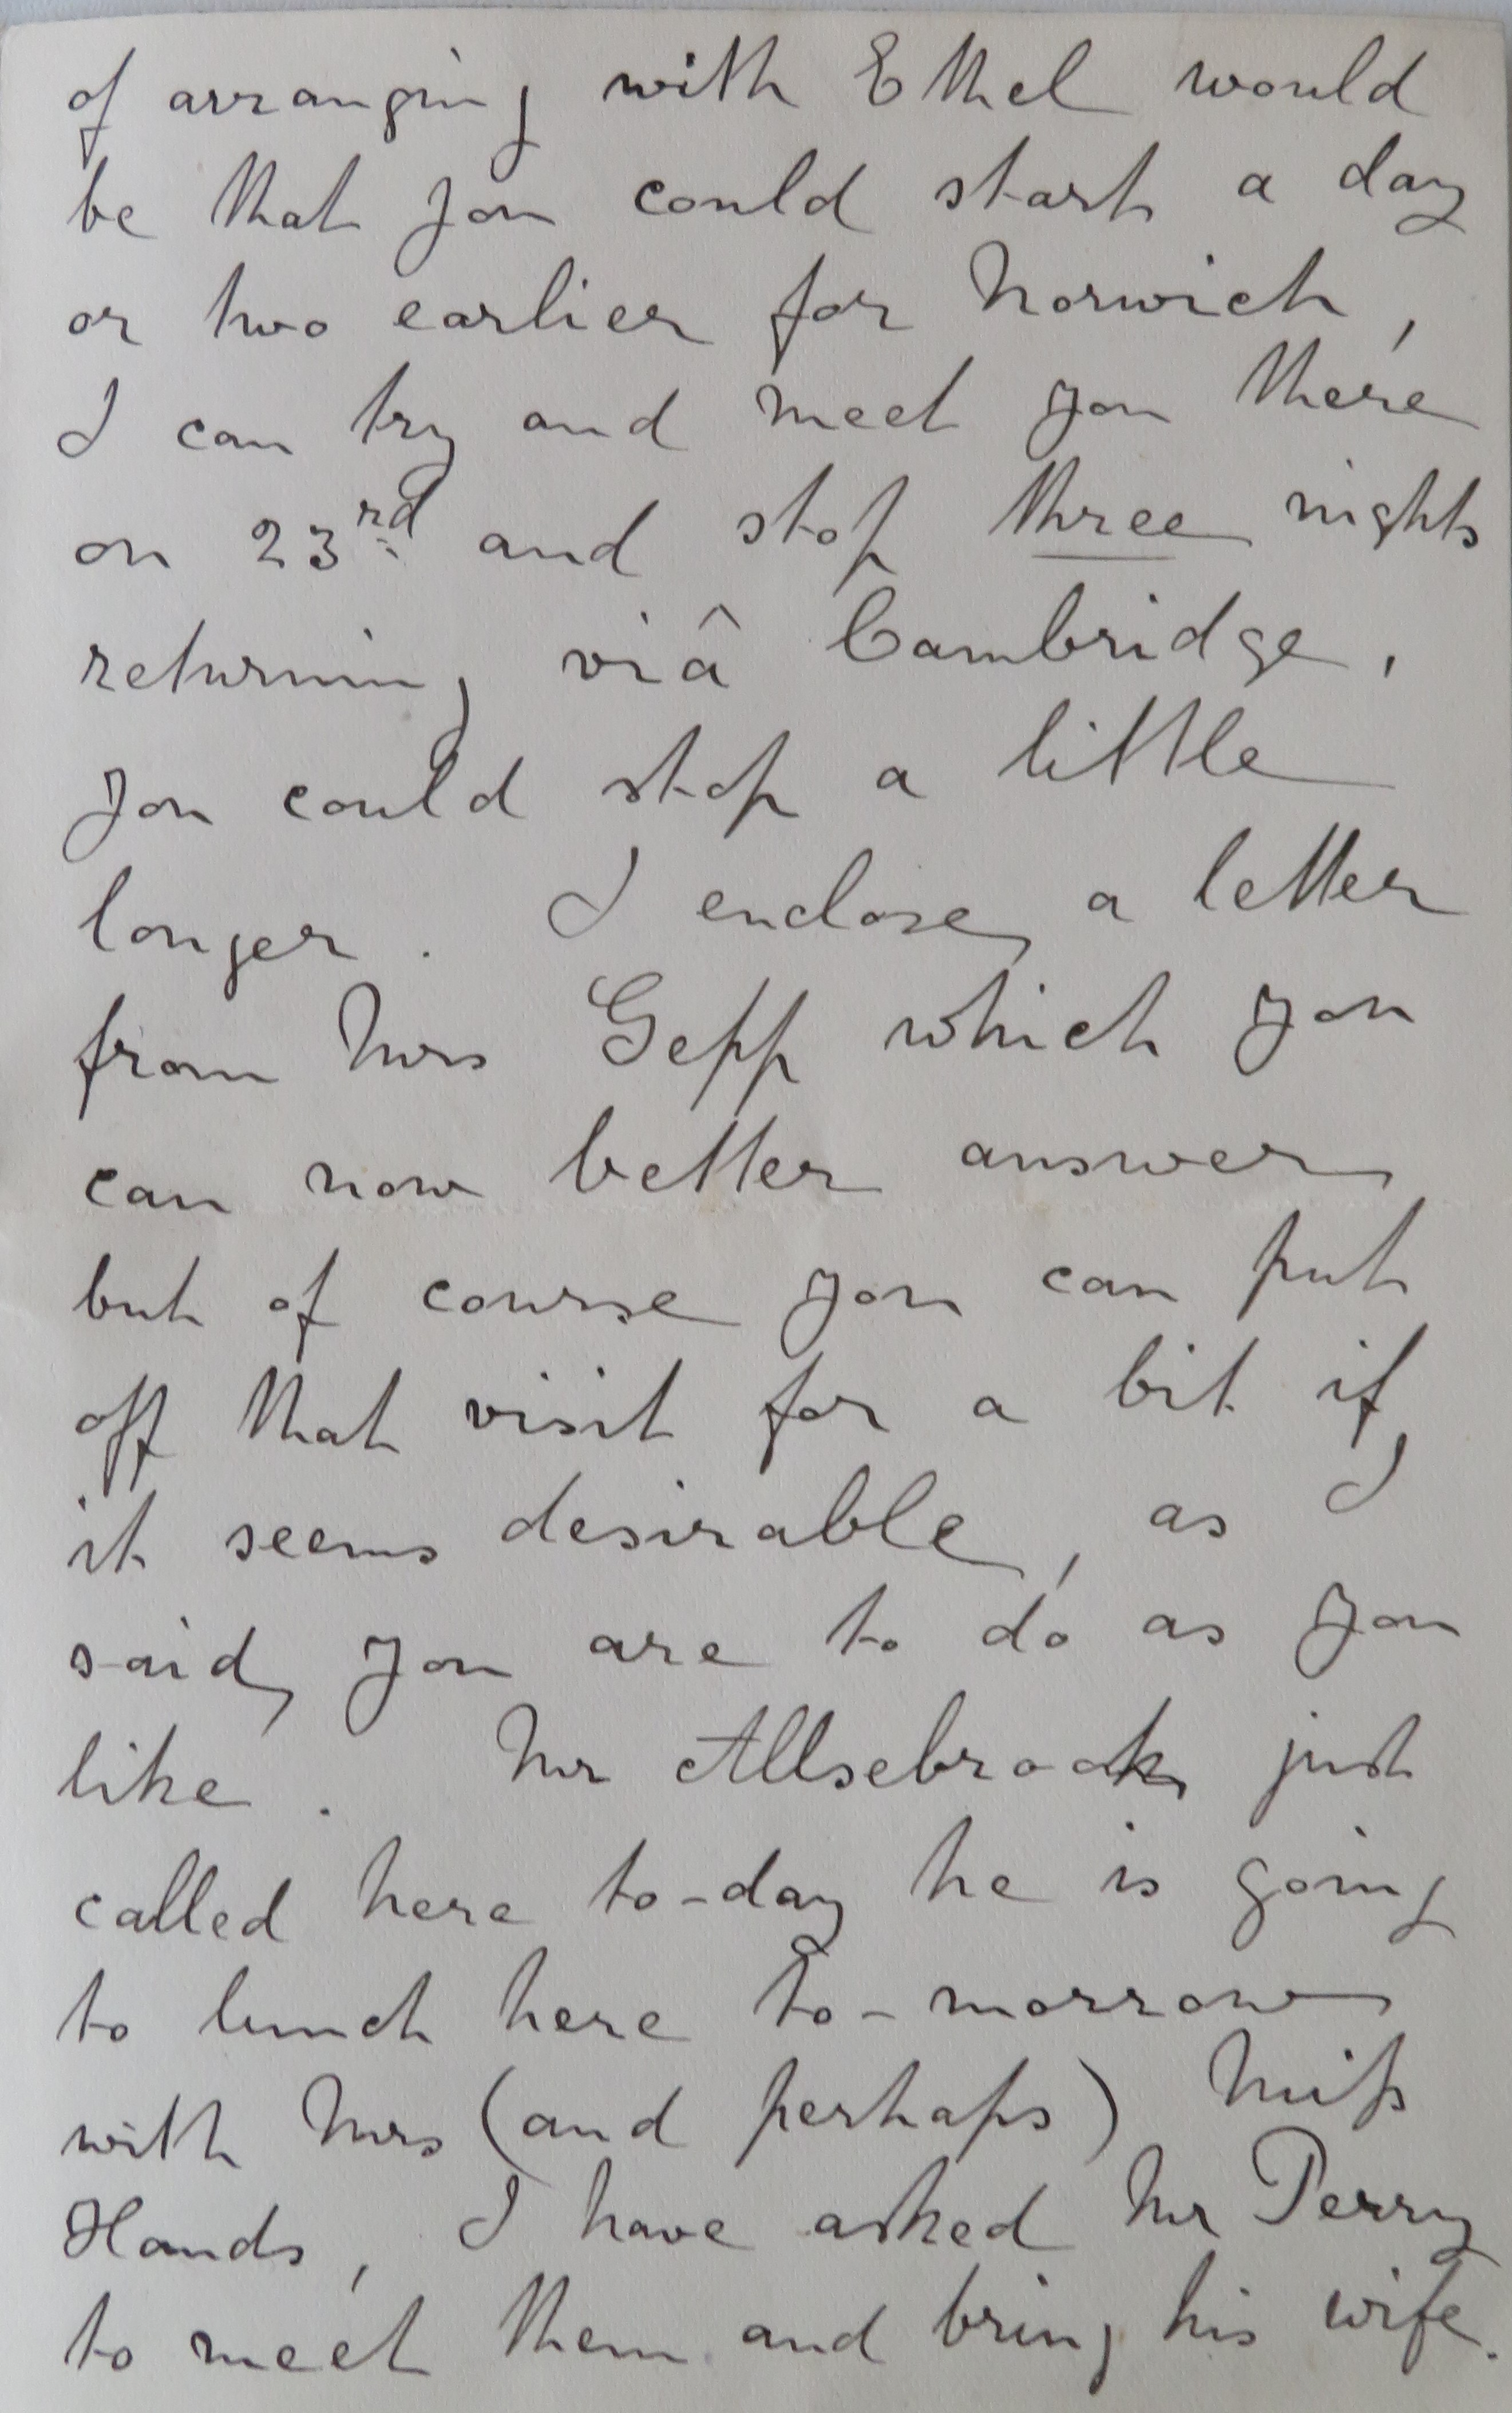 of arranging with Ethel would
be that you could start a day
or two earlier for Norwich,
I can try and meet you there
on 23rd and stop three nights
returning viâ Cambridge,
you could stop a little
longer. I enclose a letter
from Mrs Gepp which you
can now better answer
but of course you can put
off that visit for a bit if
it seems desirable, as I
said, you are to do as you
like. Mr Allsebrook just
called here to-day he is going
to lunch here to-morrow
with Mrs (and perhaps) Miss
Hands, I have asked Mr Perry
to meet them and bring his wife.